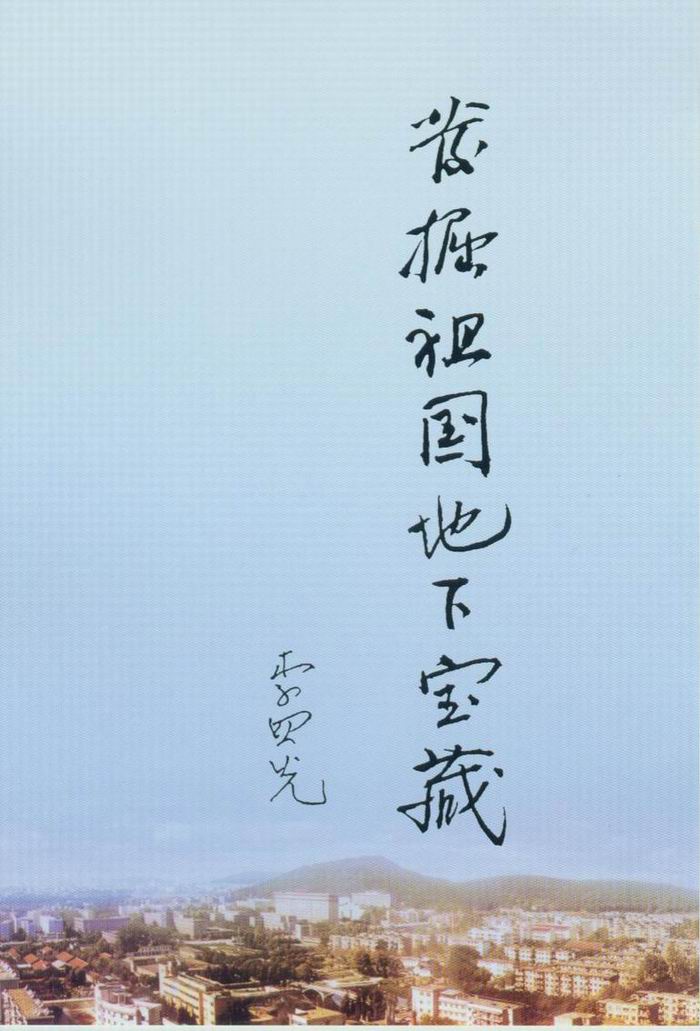 发掘祖国地下宝藏
李四光